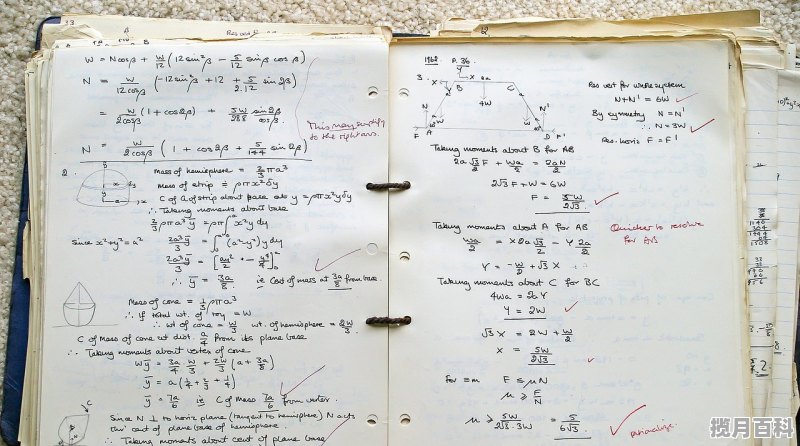 33
W = Ncosβ + W/12 (12 sin²β - 5/12 sinβ cosβ)
N = W/12cosβ (-12sin²β + 12 + 5/2.12 sin 2β)
= W/2cosβ (1 + cos2β) + 5W/288 sin2β/cosβ.
This may simplify
to the right ans.
N = W/2cosβ (1 + cos2β + 5/144 sin2β)
2.
Mass of hemisphere = 2/3 πa³
Mass of strip = ρπx²δy
C of G of strip about base as y = ρπx²yδy
∴ Taking moments about base
2/3 ρπa³ȳ = ∫ρπx²y dy
Since x²+y² = a²
2a³ȳ/3 = ∫(a²-y²)y dy
2a³ȳ/3 = [ay²/2 - y⁴/4]
∴ ȳ = 3a/8 ie Cent of mass at 3a/8 from base.
Mass of cone = 1/3 ρπa³
∴ If total wt. of toy = W
∴ wt of cone = W/3 wt. of hemisphere = 2W/3
C of Mass of cone at dist. a/4 from its plane base
∴ Taking moments about vertex of cone
Wȳ = 3a/4 W/3 + 2W/3 (a + 3a/8)
ȳ = a(1/4 + 2/3 + 1/4)
ȳ = 7a/6 ie C of mass 7a/6 from vertex.
C
Since N ⊥ to horiz plane (tangent to hemisphere) N acts
thro' cent of plane base of hemisphere.
∴ Taking moments about cent of plane base
1968 P. 36
3.
X
2a
B
C
4W
N
N'
W
W
F
A
D
F'
Res vert for whole system
N+N' = 6W
By symmetry N = N'
∴ N = 3W
Res. horiz F = F'
Taking moments about B for AB
2a√3/2 F + Wa/2 = 2aN/2
2√3F + W = 6W
F = 5W/2√3
Taking moments about A for AB
Quicker to resolve
for AB
Wa/2 = X2a√3/2 - Y2a/2
Y = -W/2 + √3X
Taking moments about C for BC
4Wa = 2aY
Y = 2W
√3X = 2W + W/2
X = 5W/2√3
for =m F ≤ μN
μ ≥ F/N
μ ≥ 5W/2√3.3W = 5/6√3
rationalize.
揽月百科